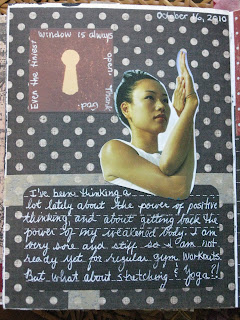 October 16, 2010
Even the tiniest
window is always
open. Thank
God.
I've been thinking a
lot lately about the power of positive
thinking, and about getting back the
power of my weakened body. I am
very sore and stiff so I am not
ready yet for regular gym workouts.
But what about stretching & Yoga?!